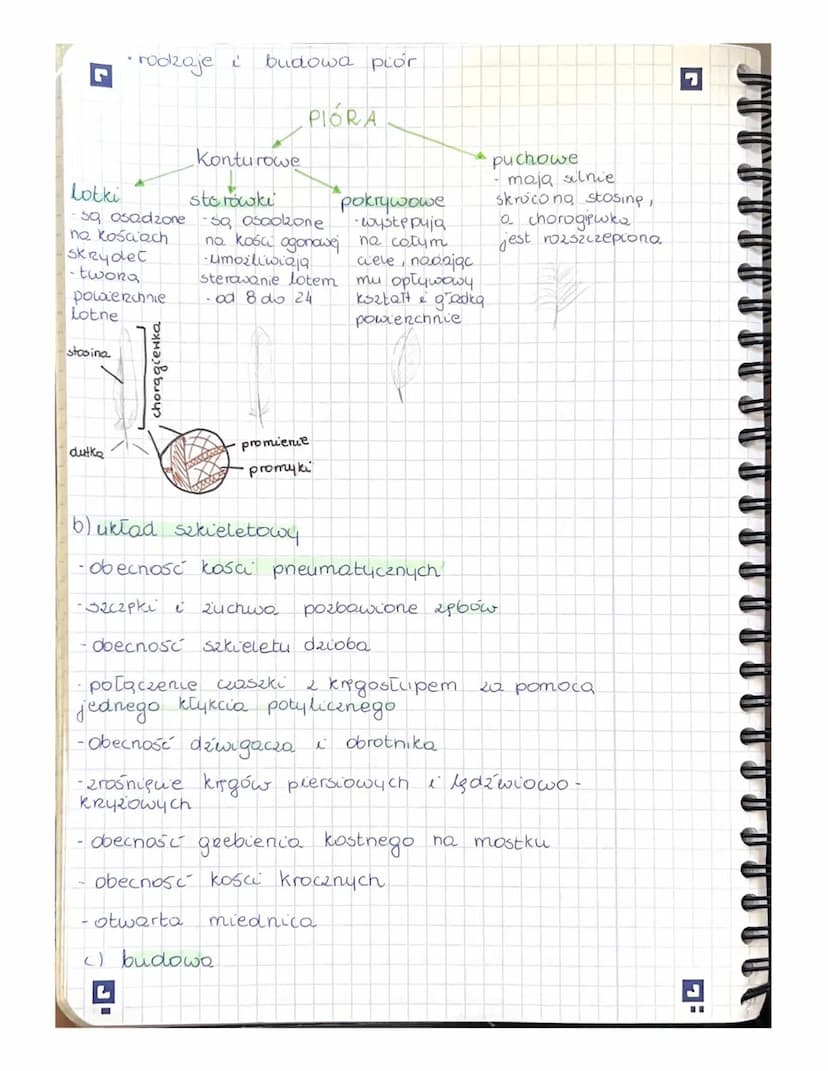 · rodzaje i budowa piór
PIÓRA
Konturowe
Lotki
- są osadzone
na kościach
skrzydeł
- tworzą
powierzchnie
lotne
sterówki
- są osadzone
na kości ogonowej
- umożliwiają
sterowanie lotem
- od 8 do 24
pokrywowe
- występują
na całym
ciele, nadając
mu opływowy
kształt i gładką
powierzchnie
puchowe
- mają silnie
skróconą stosinę,
a chorągiewka
jest rozszczepiona
stosina
chorągiewka
dutka
promienie
promyki
b) układ szkieletowy
- obecność kości pneumatycznych
- szczęki i żuchwa pozbawione zębów
- obecność szkieletu dzioba
- połączenie czaszki z kręgosłupem za pomocą
jednego kłykcia potylicznego
- obecność dźwigacza i obrotnika
- zrośnięcie kręgów piersiowych i lędźwiowo-
krzyżowych
- obecność grzebienia kostnego na mostku
- obecność kości krocznych
- otwarta miednica
c) budowa